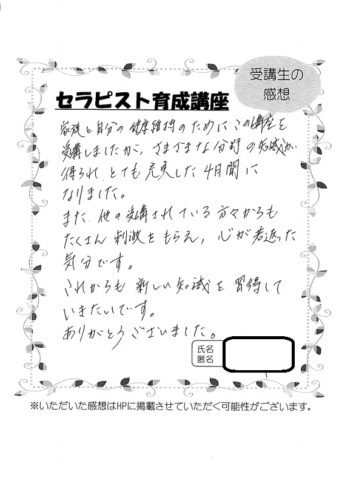 受講生の
感想
セラピスト育成講座
家族と自分の健康維持のためにこの講座を
受講しましたが、さまざまな分野の知識が
得られとても充実した4日間に
なりました。
また、他の受講されている方々からも
たくさん刺激をもらえ、心が若返った
気分です。
これからも新しい知識を習得して
いきたいです。
ありがとうございました。
氏名
匿名
※いただいた感想はHPに掲載させていただく可能性がございます。